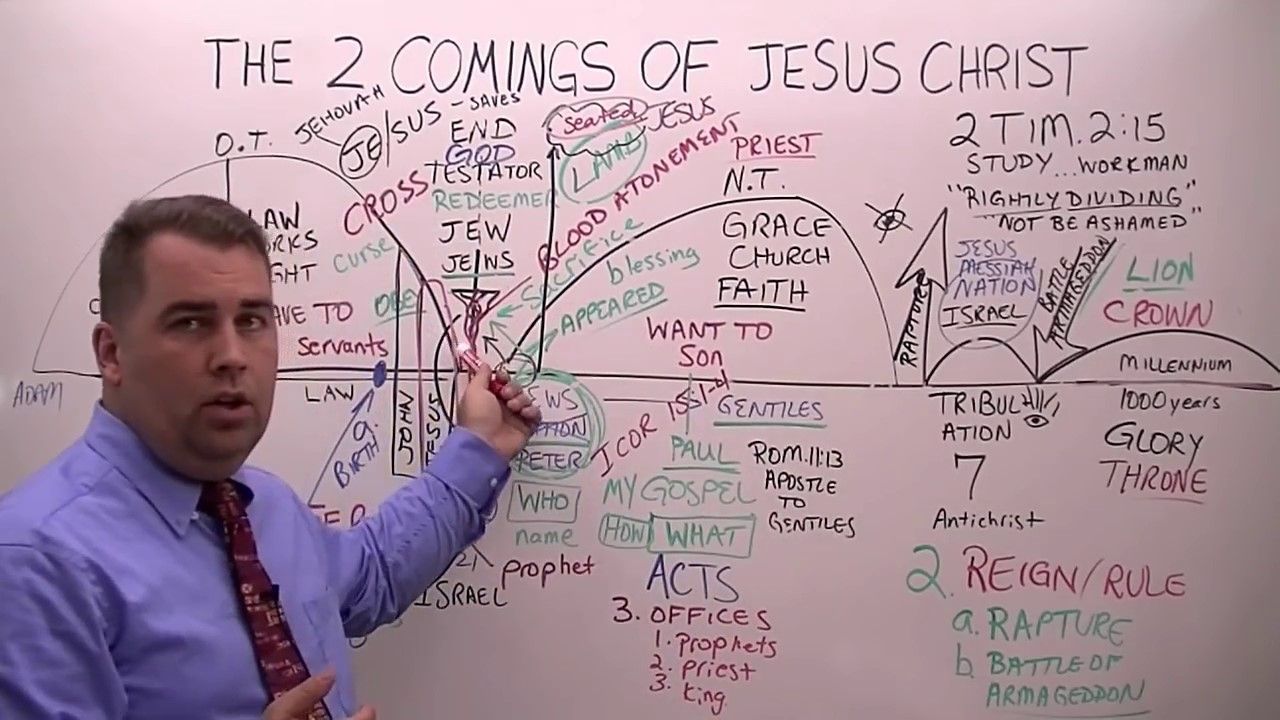 THE 2 COMINGS OF JESUS CHRIST
O.T.
JEHOVAH
JE/SUS - SAVES
END
GOD
TESTATOR
REDEEMER
JEW
JEWS
CROSS
curse
OBEY
seated
JESUS
LAMB
BLOOD ATONEMENT
Sacrifice
blessing
APPEARED
PRIEST
N.T.
GRACE
CHURCH
FAITH
WANT TO
Son
2 TIM. 2:15
STUDY... WORKMAN
"RIGHTLY DIVIDING"
"NOT BE ASHAMED"
RAPTURE
JESUS
MESSIAH
NATION
ISRAEL
BATTLE
ARMAGEDDON
LION
CROWN
MILLENNIUM
LAW
AVE TO
Servants
ADAM
LAW
a.
BIRTH
JOHN
JESUS
EWS
PETER
WHO
name
prophet
ISRAEL
I COR 15:1-4
GENTILES
PAUL
MY GOSPEL
HOW WHAT
ROM. 11:13
APOSTLE
TO
GENTILES
ACTS
3. OFFICES
1. prophets
2. priest
3. king
TRIBUL
ATION
7
Antichrist
1000 years
GLORY
THRONE
2. REIGN/RULE
a. RAPTURE
b. BATTLE OF
ARMAGEDDON